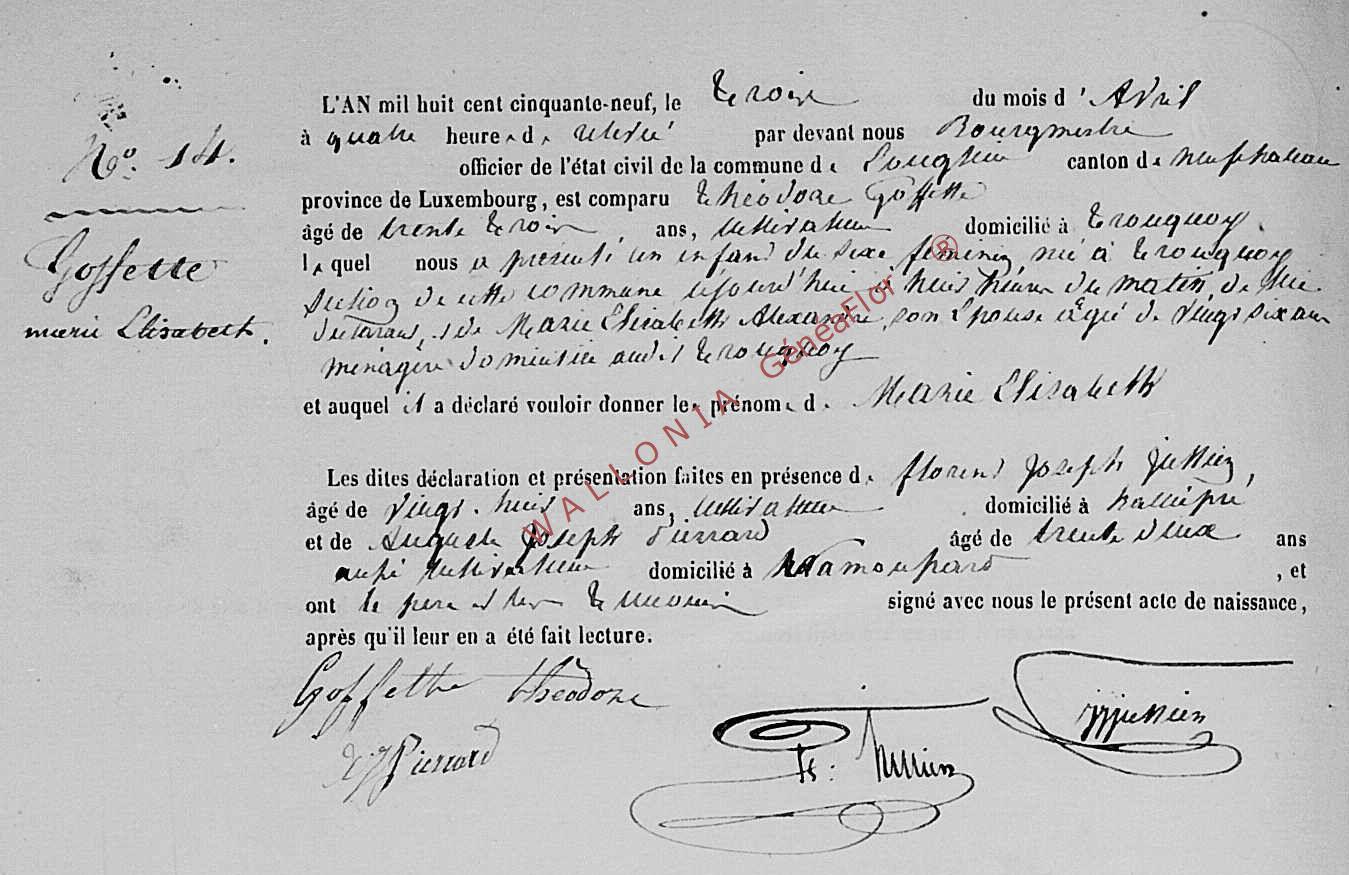 No. 14.
Goffette
marie Elisabeth.
L'AN mil huit cent cinquante-neuf, le trois du mois d'Avril
à quatre heures de relevé par devant nous Bourgmestre
officier de l'état civil de la commune de Longlier canton de neufchateau
province de Luxembourg, est comparu théodore Goffette
âgé de trente trois, ans, cultivateur domicilié à tronquoy
lequel nous a présenté un enfant du sexe féminin né à tronquoy
section de cette commune cejourd'hui à huit heures du matin, de lui
declarant, et de Marie Elisabeth Alexandre, son Epouse agé de vingt six ans
ménagère domicilié audit tronquoy
et auquel il a déclaré vouloir donner les prénoms de Marie Elisabeth
Les dites déclaration et présentation faites en présence de florent Joseph
âgé de vingt-huit ans, cultivateur domicilié à
et de Auguste Joseph Pierrard âgé de trente deux ans
aussi cultivateur domicilié à Massul
ont le père et les temoins signé avec nous le présent acte de naissance,
après qu'il leur en a été fait lecture.
Goffette théodore
Pierrard
WALLONIA GéneaFlor ®